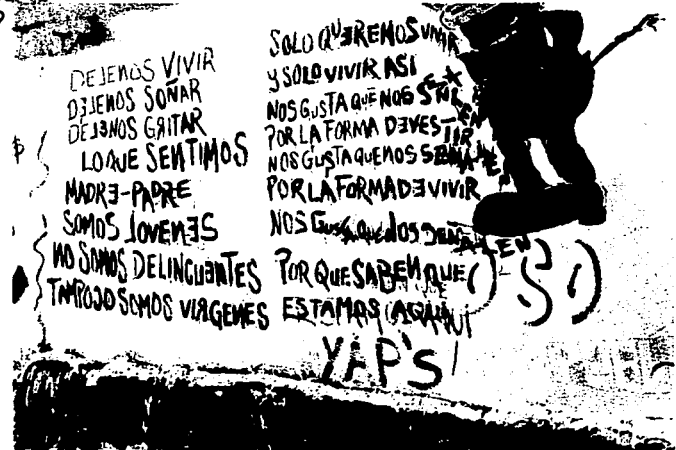 DEJENOS VIVIR
DEJENOS SOÑAR
DEJENOS GRITAR
LO QUE SENTIMOS
MADRE-PADRE
SOMOS JOVENES
NO SOMOS DELINCUENTES
TAMPOCO SOMOS VIRGENES
SOLO QUEREMOS VIVIR
Y SOLO VIVIR ASI
NOS GUSTA QUE NOS SEÑALEN
POR LA FORMA DE VESTIR
NOS GUSTA QUE NOS SEÑALEN
POR LA FORMA DE VIVIR
NOS GUSTA QUE NOS SEÑALEN
PORQUE SABEN QUE
ESTAMOS AQUI
YAP'S